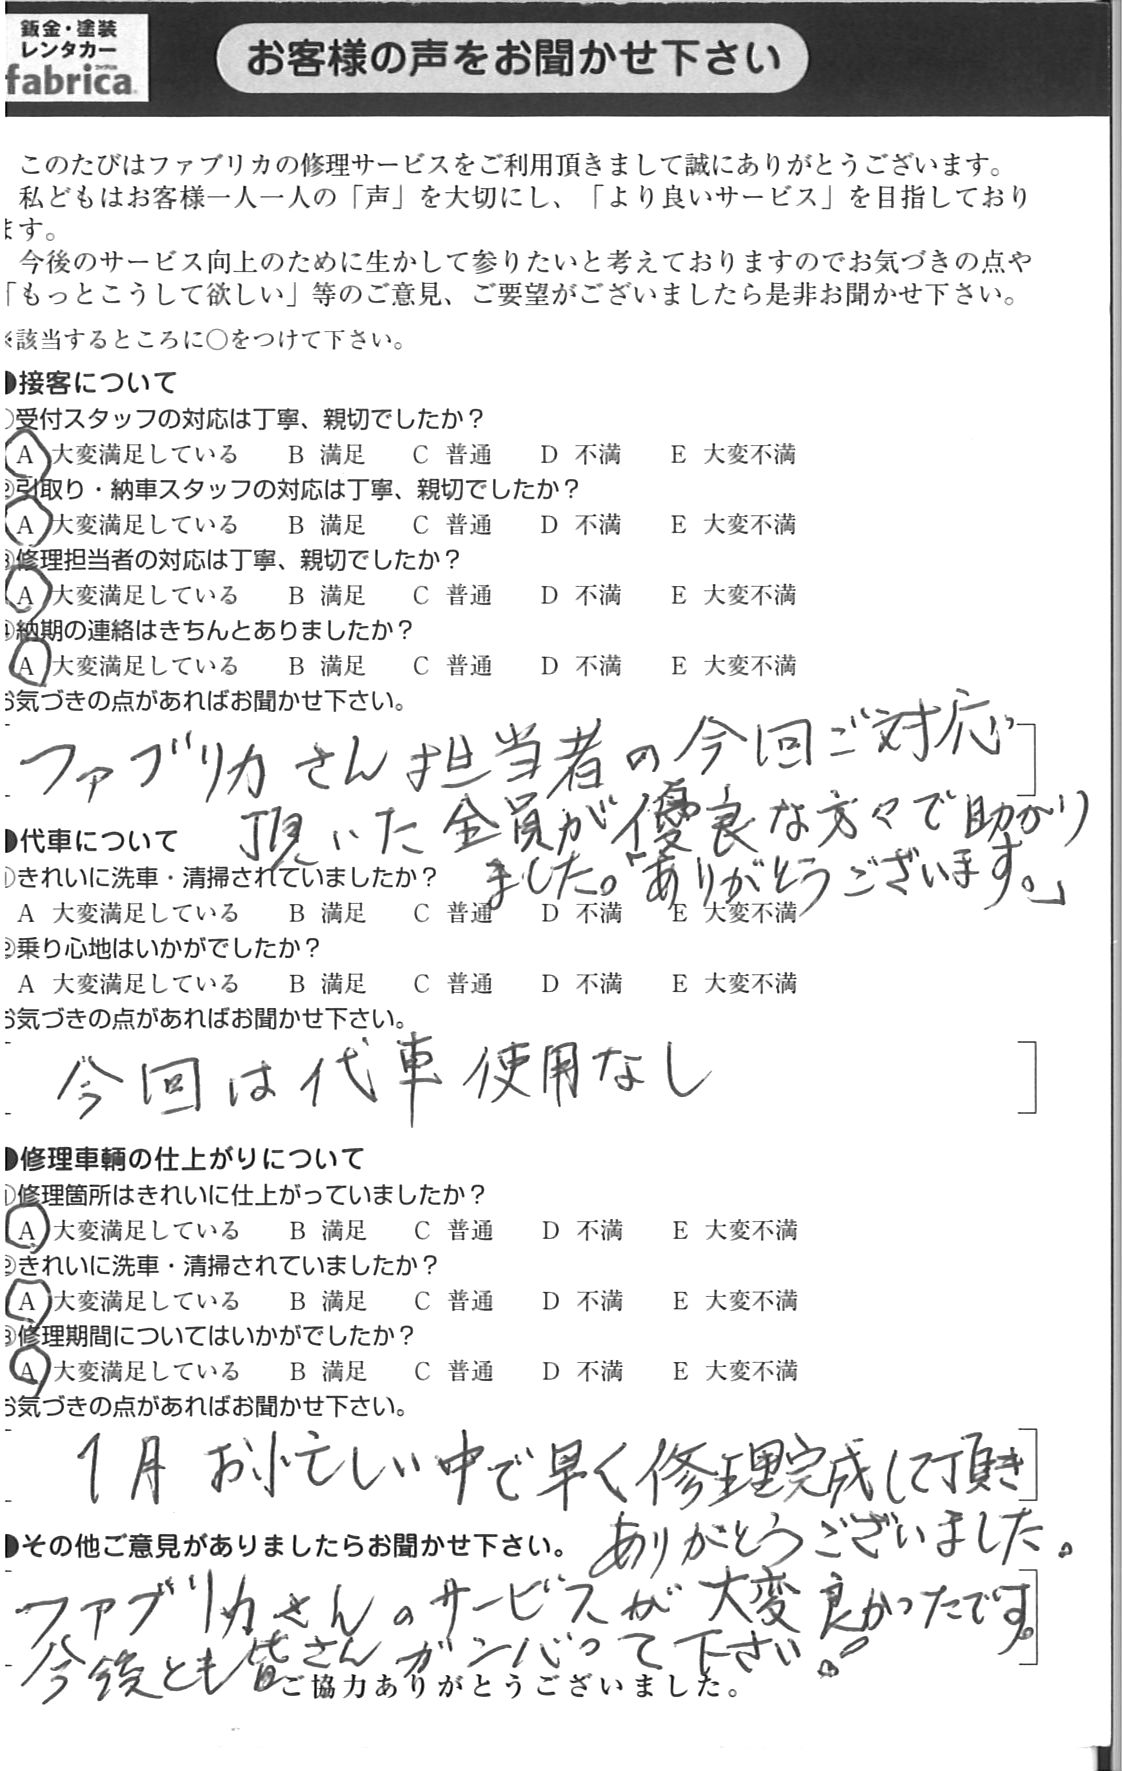 鈑金・塗装
レンタカー
fabrica
お客様の声をお聞かせ下さい
このたびはファブリカの修理サービスをご利用頂きまして誠にありがとうございます。
私どもはお客様一人一人の「声」を大切にし、「より良いサービス」を目指しており
ます。
今後のサービス向上のために生かして参りたいと考えておりますのでお気づきの点や
「もっとこうして欲しい」等のご意見、ご要望がございましたら是非お聞かせ下さい。
※該当するところに○をつけて下さい。
●接客について
①受付スタッフの対応は丁寧、親切でしたか？
A 大変満足している B 満足 C 普通 D 不満 E 大変不満
②引取り・納車スタッフの対応は丁寧、親切でしたか？
A 大変満足している B 満足 C 普通 D 不満 E 大変不満
③修理担当者の対応は丁寧、親切でしたか？
A 大変満足している B 満足 C 普通 D 不満 E 大変不満
④納期の連絡はきちんとありましたか？
A 大変満足している B 満足 C 普通 D 不満 E 大変不満
お気づきの点があればお聞かせ下さい。
ファブリカさん担当者の今回ご対応
頂いた全員が優良な方々で助かり
ました。「ありがとうございます。」
●代車について
①きれいに洗車・清掃されていましたか？
A 大変満足している B 満足 C 普通 D 不満 E 大変不満
②乗り心地はいかがでしたか？
A 大変満足している B 満足 C 普通 D 不満 E 大変不満
お気づきの点があればお聞かせ下さい。
今回は代車使用なし
●修理車輌の仕上がりについて
①修理箇所はきれいに仕上がっていましたか？
A 大変満足している B 満足 C 普通 D 不満 E 大変不満
②きれいに洗車・清掃されていましたか？
A 大変満足している B 満足 C 普通 D 不満 E 大変不満
③修理期間についてはいかがでしたか？
A 大変満足している B 満足 C 普通 D 不満 E 大変不満
お気づきの点があればお聞かせ下さい。
1月お忙しい中で早く修理完成して頂き
ありがとうございました。
●その他ご意見がありましたらお聞かせ下さい。
ファブリカさんのサービスが大変良かったです。
今後とも皆さんガンバって下さい。
ご協力ありがとうございました。